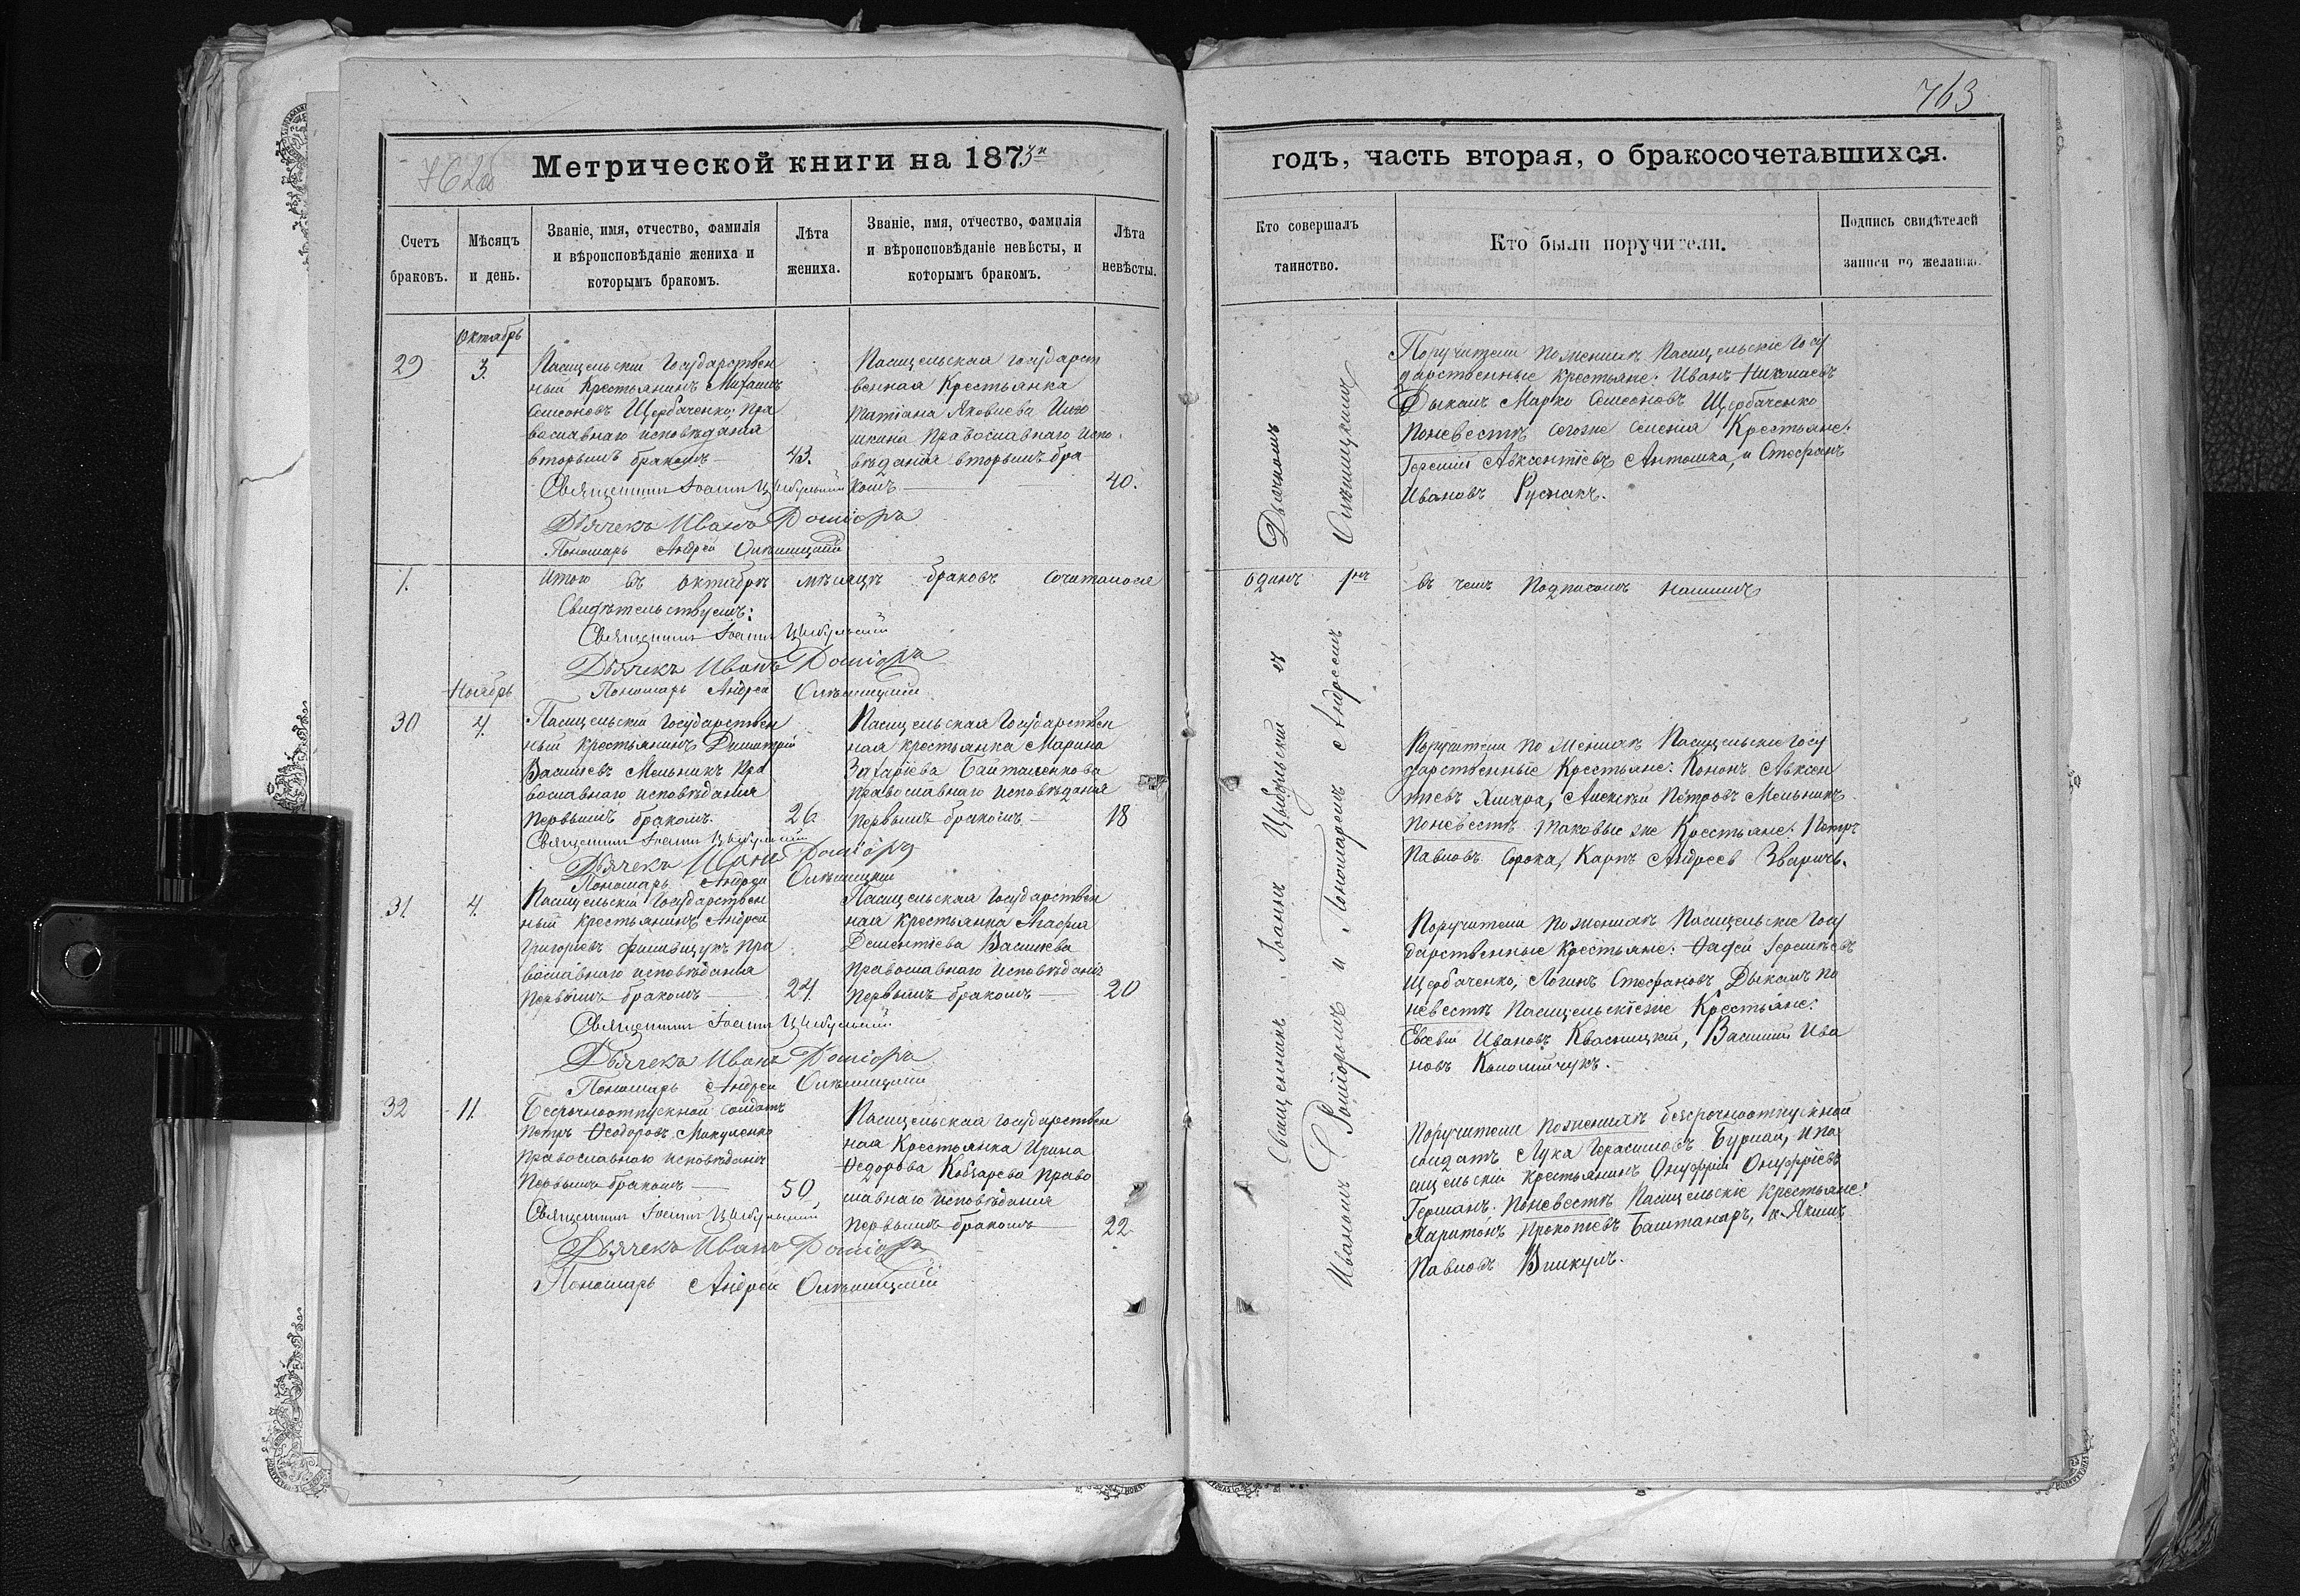 763
Метрической книги на 1873й
годъ, часть вторая, о бракосочетавшихся.
Счетъ браковъ.
Мѣсяцъ и день.
Званіе, имя, отчество, фамилія
и вѣроисповѣданіе жениха и
которымъ бракомъ.
Лѣта жениха.
Званіе, имя, отчество, фамилія
и вѣроисповѣданіе невѣсты, и
которымъ бракомъ.
Лѣта невѣсты.
Кто совершалъ
таинство.
Кто были поручители.
Подпись свидѣтелей
записи по желанію.
Октябрь
29
3.
Пасицельскій Государствен
ный Крестьянинъ Михаилъ
Симеоновъ Щербаченко; Пра
вославнаго исповѣданія
вторымъ бракомъ
43.
Священникъ Іоаннъ Цыбульскій
Дьячекъ Иванъ
Пономарь Андрей
Пасицельская Государст
венная Крестьянка
Татіана Яковлева
Православнаго Испо
вѣданія вторымъ бра
комъ
40.
Поручители по женихѣ Пасицельскіе Госу
дарственные Крестьяне: Иванъ Николаевъ
Дыкалъ Марко Симеоновъ Щербаченко
Поневестѣ сегоже селенія Крестьяне:
Авксентіевъ Антошка, и Стефанъ
Ивановъ Руснакъ.
1.
Итого въ Октябрѣ мѣсяцѣ браковъ сочеталося
одинъ 1нъ въ чемъ Подписомъ нашимъ
Свидѣтельствуемъ:
Священникъ Іоаннъ Цыбульскій
Дьячекъ Иванъ
Пономарь Андрей
Ноябрь
30
4.
Пасицельскій Государствен
ный Крестьянинъ Димитрій
Васильевъ Мельникъ Пра
вославнаго исповѣданія
Первымъ бракомъ.
26
Священникъ Іоаннъ Цыбульскій
Дьячекъ Иванъ
Пономарь Андрей
Пасицельская Государствен
ная Крестьянка Марина
Захаріева Байталенкова
Православнаго Исповѣданія
Первымъ бракомъ
18
Поручители по Женихѣ Пасицельскіе Госу
дарственные Крестьяне: Кононъ Авксен
тіевъ Хмара, Алексѣй Петровъ Мельникъ
Поневестѣ таковые же Крестьяне: Петръ
Павловъ Сорока, Карпъ Андреевъ Зваричъ.
31.
4.
Пасицельскій Государствен
ный Крестьянинъ Андрей
Григоріевъ Пра
вославнаго исповѣданія
Первымъ бракомъ
24.
Священникъ Іоаннъ Цыбульскій
Дьячекъ Иванъ
Пономарь Андрей
Пасицельская Государствен
ная Крестьянка Агафія
Дементіева Васильева
Православнаго Исповѣданія
Первымъ бракомъ
20
Поручители по женихѣ Пасицельскіе Госу
дарственные Крестьяне:
Щербаченко, Логинъ Стефановъ Дыкалъ по
невестѣ Пасицельскіеже Крестьяне:
Евсевій Ивановъ Квасницкій, Василій Ива
новъ Коломійчукъ.
32
11.
Безсрочноотпускной солдатъ
Петръ Ѳеодоровъ Макуленко
Православнаго исповѣданія
Первымъ бракомъ
50
Священникъ Іоаннъ Цыбульскій
Дьячекъ Иванъ
Пономарь Андрей
Пасицельская Государствен
ная Крестьянка Ирина
Ѳедорова Кобзарева Право
славнаго Исповѣданія
Первымъ бракомъ
22
Поручители поженихѣ безсрочноотпускной
солдатъ Лука Герасимовъ Бурлай, и Па
сицельскій Крестьянинъ Онуфрій Онуфріевъ
Германъ. Поневестѣ Пасицельскіе Крестьяне:
Харитонъ Прокопіевъ Баштанаръ, и Якимъ
Павловъ Викулъ.
Священникъ Іоаннъ Цыбульскій съ Дьячкомъ
Иваномъ и Пономаремъ Андреемъ